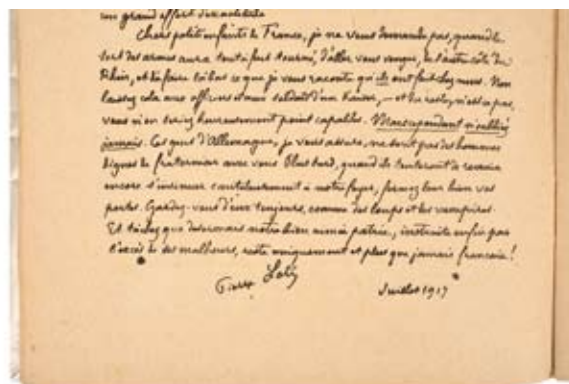 son grand effort d'exactitude
Chers petits enfants de France, je ne vous demande pas, quand le
sort des armes aura tout à fait tourné, d'aller vous venger, de l'autre côté du
Rhin, et de faire là-bas ce que je vous raconte qu'ils ont fait chez nous. Non
laissez cela aux officiers et aux soldats d'un Kaiser, — et du reste, n'est-ce pas,
vous n'en seriez heureusement point capables. Mais cependant n'oubliez
jamais. Ces gens d'Allemagne, je vous assure, ne sont pas des hommes
dignes de fraterniser avec vous. Plus tard, quand ils tenteront de revenir
encore s'insinuer cauteleusement à notre foyer, fermez leur bien vos
portes. Gardez-vous d'eux toujours, comme des loups et des vampires.
Et tâchez que désormais notre bien aimée patrie, instruite enfin par
l'excès de ses malheurs, reste uniquement et plus que jamais française!
Pierre Loti
Juillet 1917